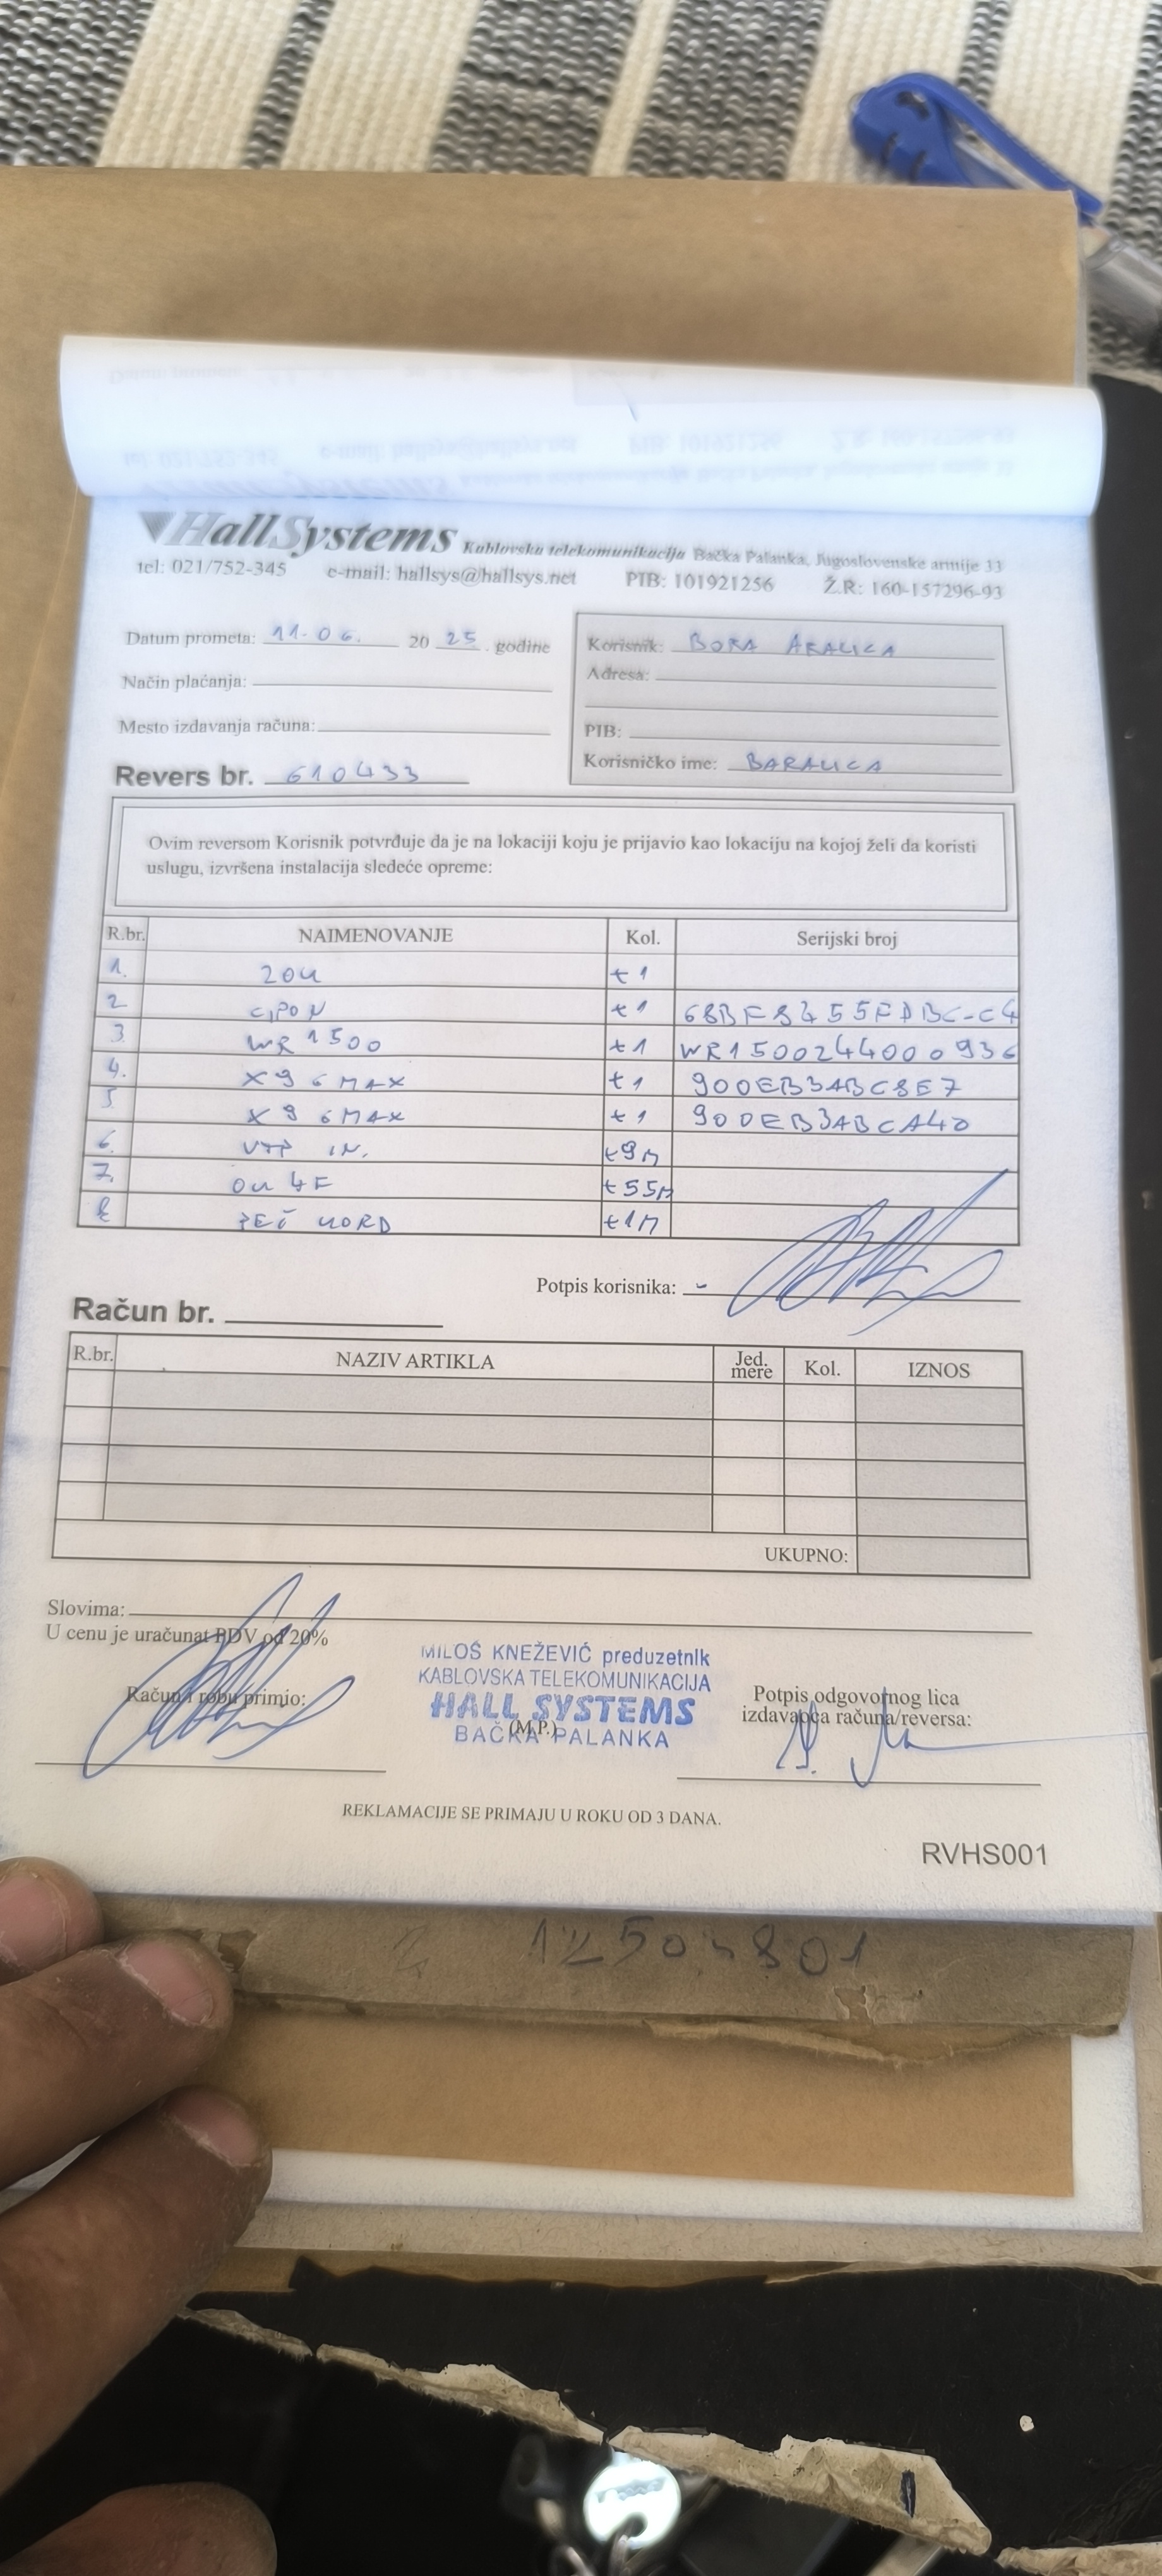 HallSystems Kablovska telekomunikacija Bačka Palanka, Jugoslovenske armije 33
tel: 021/752-345 e-mail: hallsys@hallsys.net PIB: 101921256 Ž.R: 160-157296-93
Datum prometa: 11.06. 2025. godine
Način plaćanja:
Mesto izdavanja računa:
Revers br. 610433
Korisnik: BORA ARALICA
Adresa:
PIB:
Korisničko ime: BARALICA
Ovim reversom Korisnik potvrđuje da je na lokaciji koju je prijavio kao lokaciju na kojoj želi da koristi
uslugu, izvršena instalacija sledeće opreme:
R.br. NAIMENOVANJE Kol. Serijski broj
1. ZOU +1
2 GPON +1
3. WR1500 +1 WR1500244000936
4. X96MAX +1 900EB3ABC8E7
5. X96MAX +1 900EB3ABCA40
6. UTP IN. +9M
7. OU 4F +55M
8. +1M
Potpis korisnika:
Račun br.
R.br. NAZIV ARTIKLA Jed. mere Kol. IZNOS
UKUPNO:
Slovima:
U cenu je uračunat PDV od 20%
Račun i robu primio:
MILOŠ KNEŽEVIĆ preduzetnik
KABLOVSKA TELEKOMUNIKACIJA
HALL SYSTEMS
(M.P.)
BAČKA PALANKA
Potpis odgovornog lica
izdavaoca računa/reversa:
REKLAMACIJE SE PRIMAJU U ROKU OD 3 DANA.
RVHS001